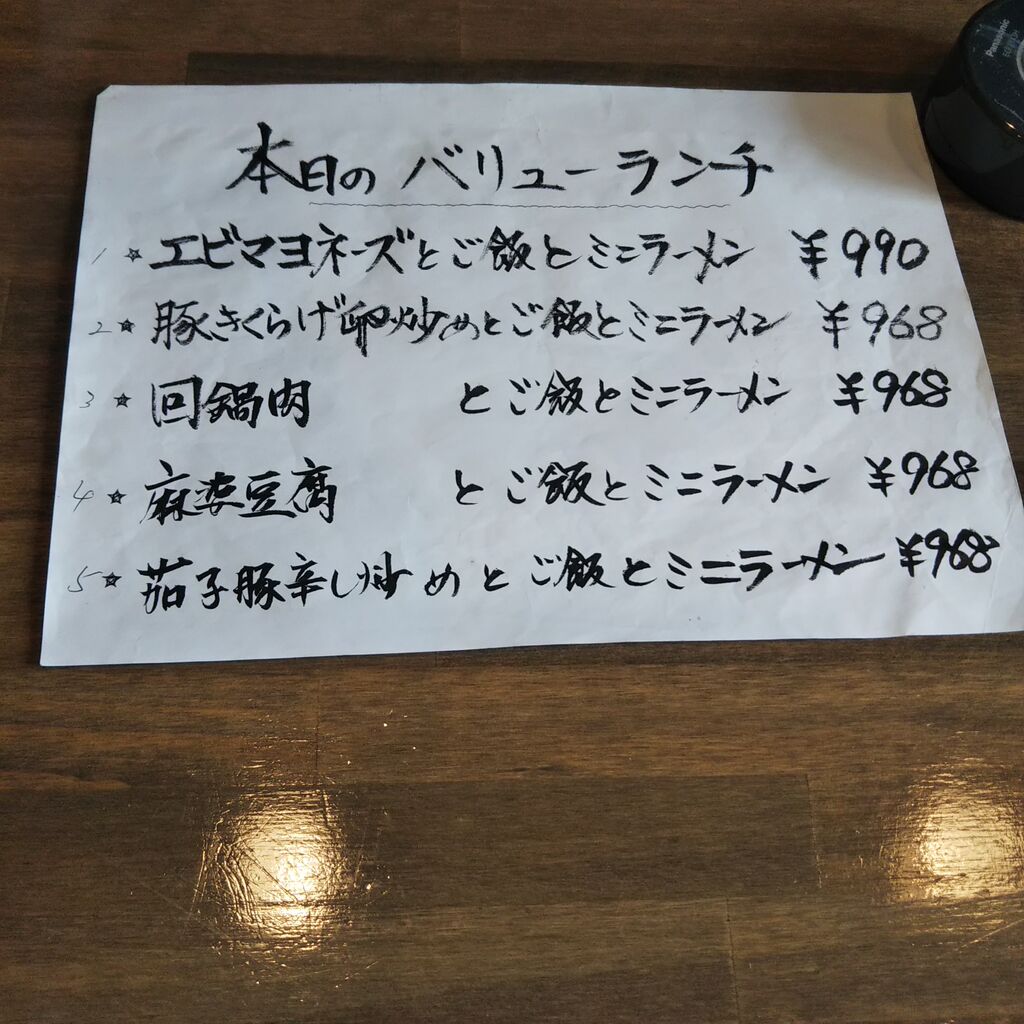 本日の バリューランチ
1 ☆ エビマヨネーズとご飯とミニラーメン ￥990
2 ☆ 豚きくらげ卵炒めとご飯とミニラーメン ￥968
3 ☆ 回鍋肉 とご飯とミニラーメン ￥968
4 ☆ 麻婆豆腐 とご飯とミニラーメン ￥968
5 ☆ 茄子豚辛し炒めとご飯とミニラーメン ￥968
Panasonic